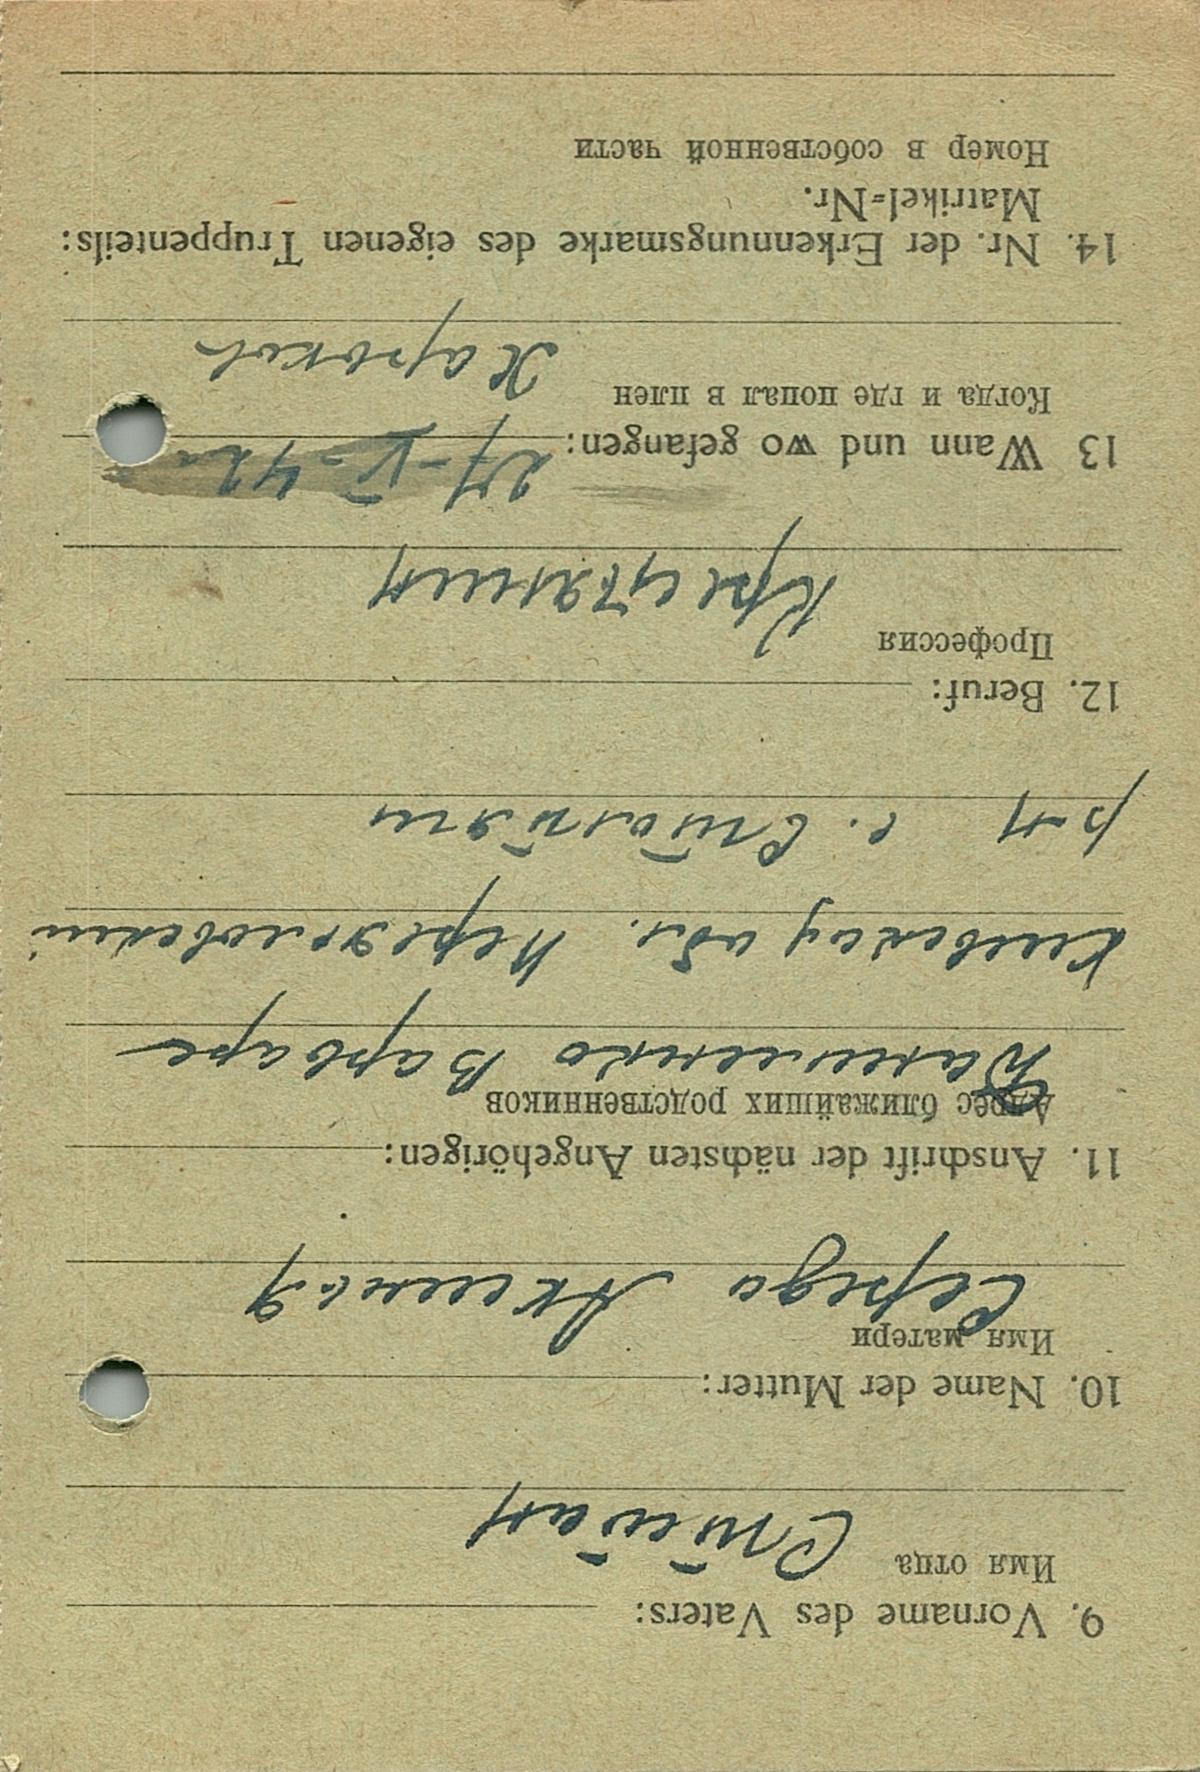 9. Vorname des Vaters:
Имя отца Степан
10. Name der Mutter:
Имя матери
Середа Аксинья
11. Anschrift der nächsten Angehörigen:
Адрес ближайших родственников
Даниленко Варвара
Киевская обл. Переяловский
р-н с. Стовпяги
12. Beruf:
Профессия
Крестянин
13 Wann und wo gefangen: 27-V-42 г.
Когда и где попал в плен
Харьков
14. Nr. der Erkennungsmarke des eigenen Truppenteils:
Matrikel-Nr.
Номер в собственной части